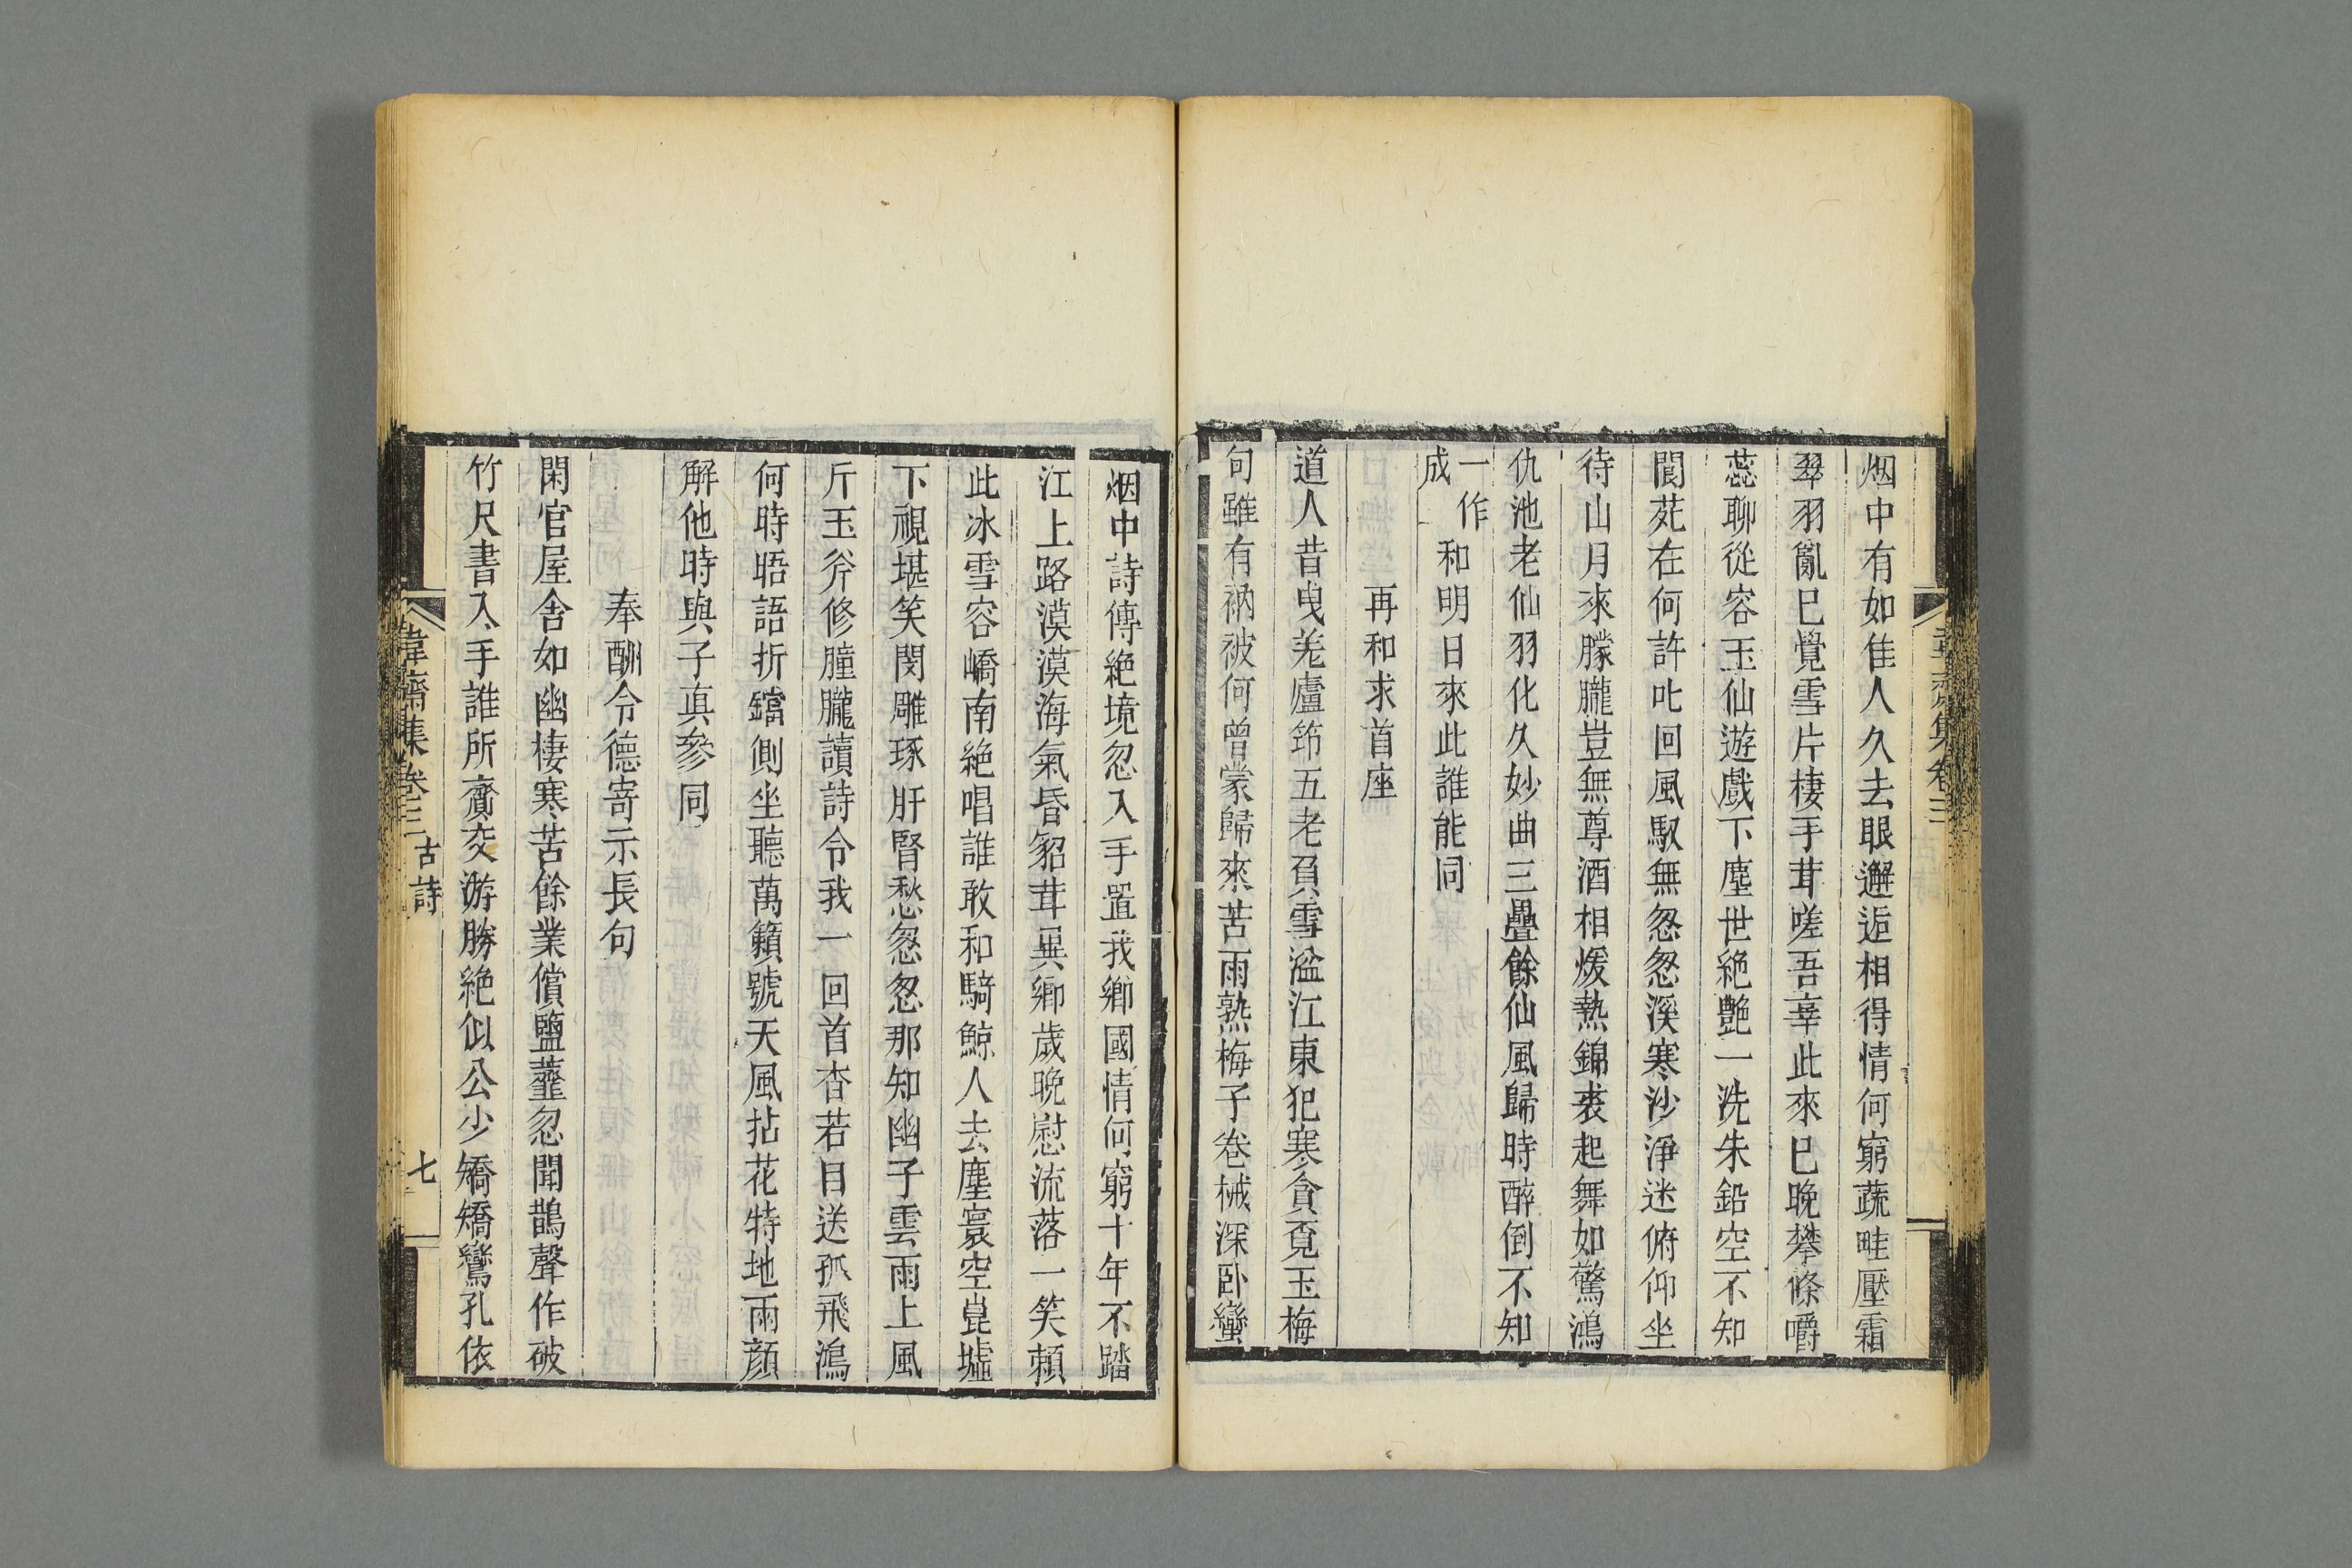 烟中有如佳人久去眼邂逅相得情何窮蔬畦壓霜
翠羽亂巳覺雪片棲手茸嗟吾辜此來巳晚攀條嚼
蕊聊從容玉仙遊戲下塵世絶艶一洗朱鉛空不知
閬苑在何許叱回風馭無怱怱溪寒沙淨迷俯仰坐
待山月來朦朧豈無尊酒相煖熱錦裘起舞如驚鴻
仇池老仙羽化久妙曲三疊餘仙風歸時醉倒不知
一作
成
和明日來此誰能同
再和求首座
道人昔曳羌廬筇五老負雪湓江東犯寒貪覓玉梅
句雖有衲被何曾蒙歸來苦雨熟梅子卷械深卧蠻
烟中詩傳絶境忽入手置我鄉國情何窮十年不踏
江上路漠漠海氣昏貂茸異鄉歲晚慰流落一笑賴
此冰雪容嶠南絶唱誰敢和騎鯨人去塵寰空崑墟
下視堪笑閔雕琢肝腎愁怱怱那知幽子雲雨上風
斤玉斧修朣朧讀詩令我一回首杏若目送孤飛鴻
何時晤語折鐺側坐聽萬籟號天風拈花特地雨顔
解他時與子真參同
奉酬令德寄示長句
閑官屋舍如幽棲寒苦餘業償鹽虀忽聞鵲聲作破
竹尺書入手誰所齎交游勝絶似公少矯矯鸞孔依
韋齋集卷三 古詩 七